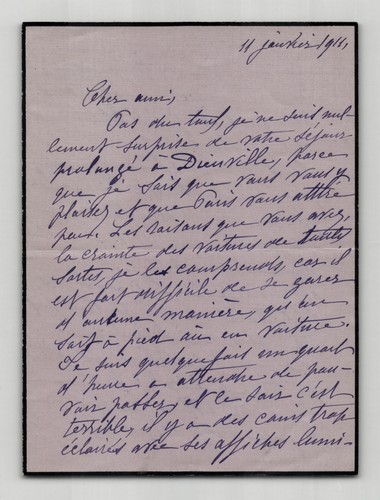 11 janvier 1911,
Cher ami,
Pas du tout, je ne suis nul-
lement surprise de votre séjour
prolongé à Dienville, parce
que je sais que vous vous y
plaisez et que Paris vous attire
peu. Les raisons que vous avez,
la crainte des voitures de toutes
sortes, je les comprends, car il
est fort difficile de se garer
d'aucune manière, qu'on
soit à pied ou en voiture.
Je suis quelquefois un quart
d'heure à attendre de pou-
voir passer, et le soir c'est
terrible, il y a des coins trop
éclairés avec ses affiches lumi-